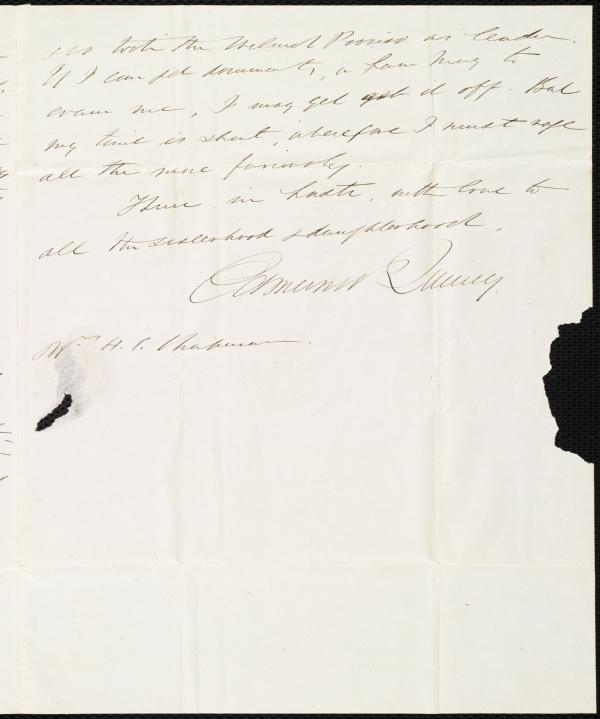 so with the Wilmot Proviso as leader.
If I can get documents, or
me, I may get it off. But
my time is short, wherefore I must
all the more furiously.
Thine in haste, with love to
all the sisterhood & daughterhood.
Edmund Quincy.
H. G. Chapman.